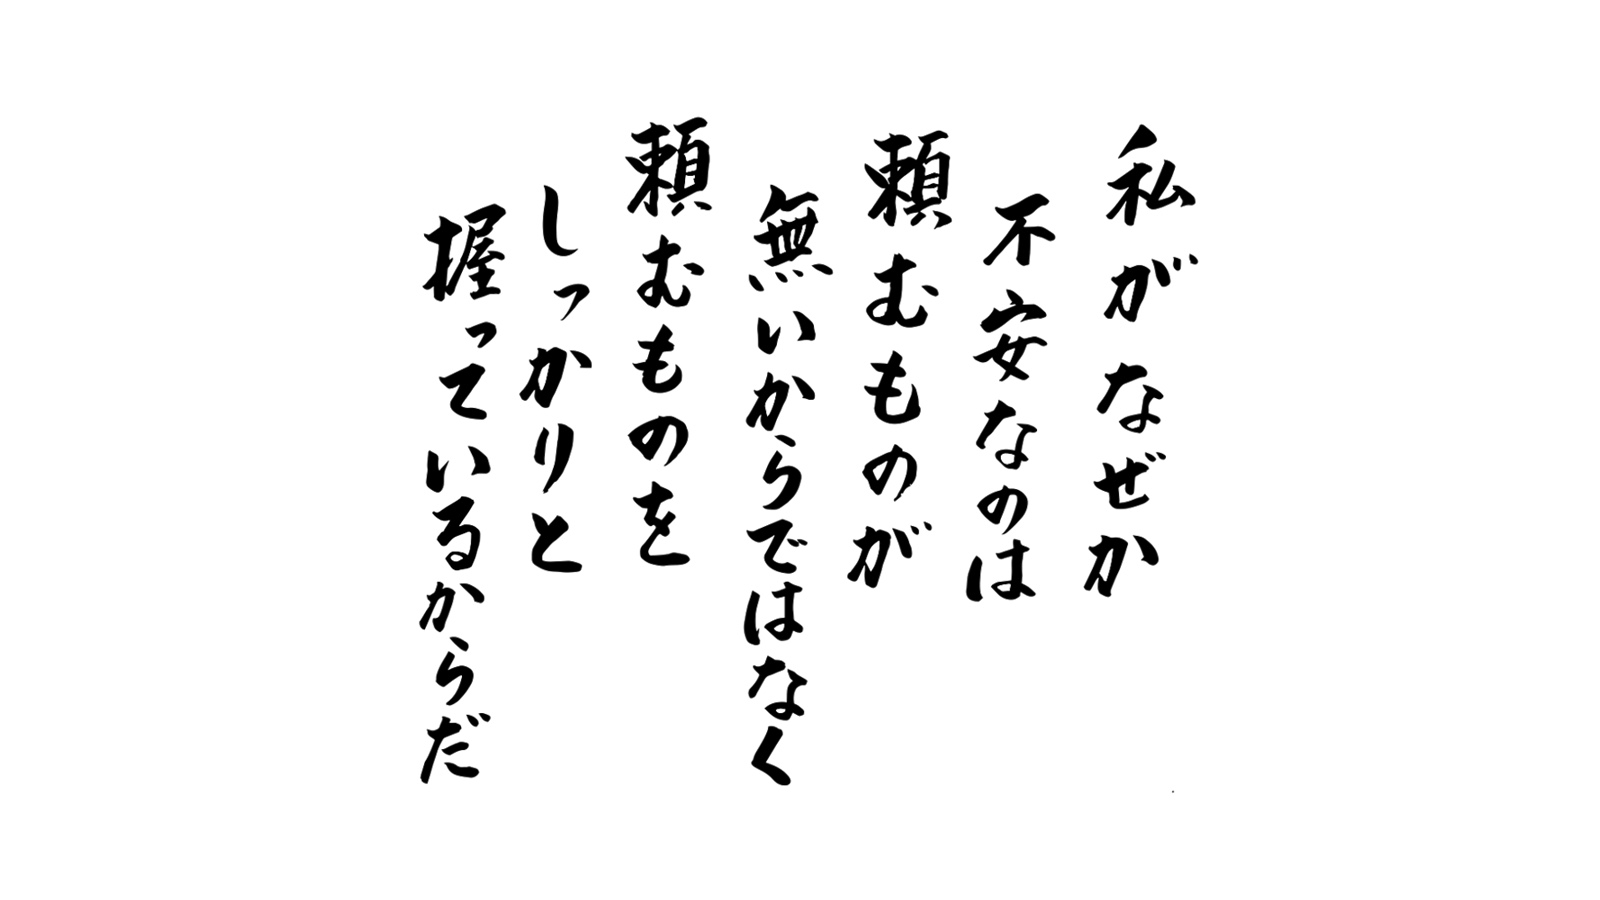 私がなぜか
不安なのは
頼むものが
無いからではなく
頼むものを
しっかりと
握っているからだ